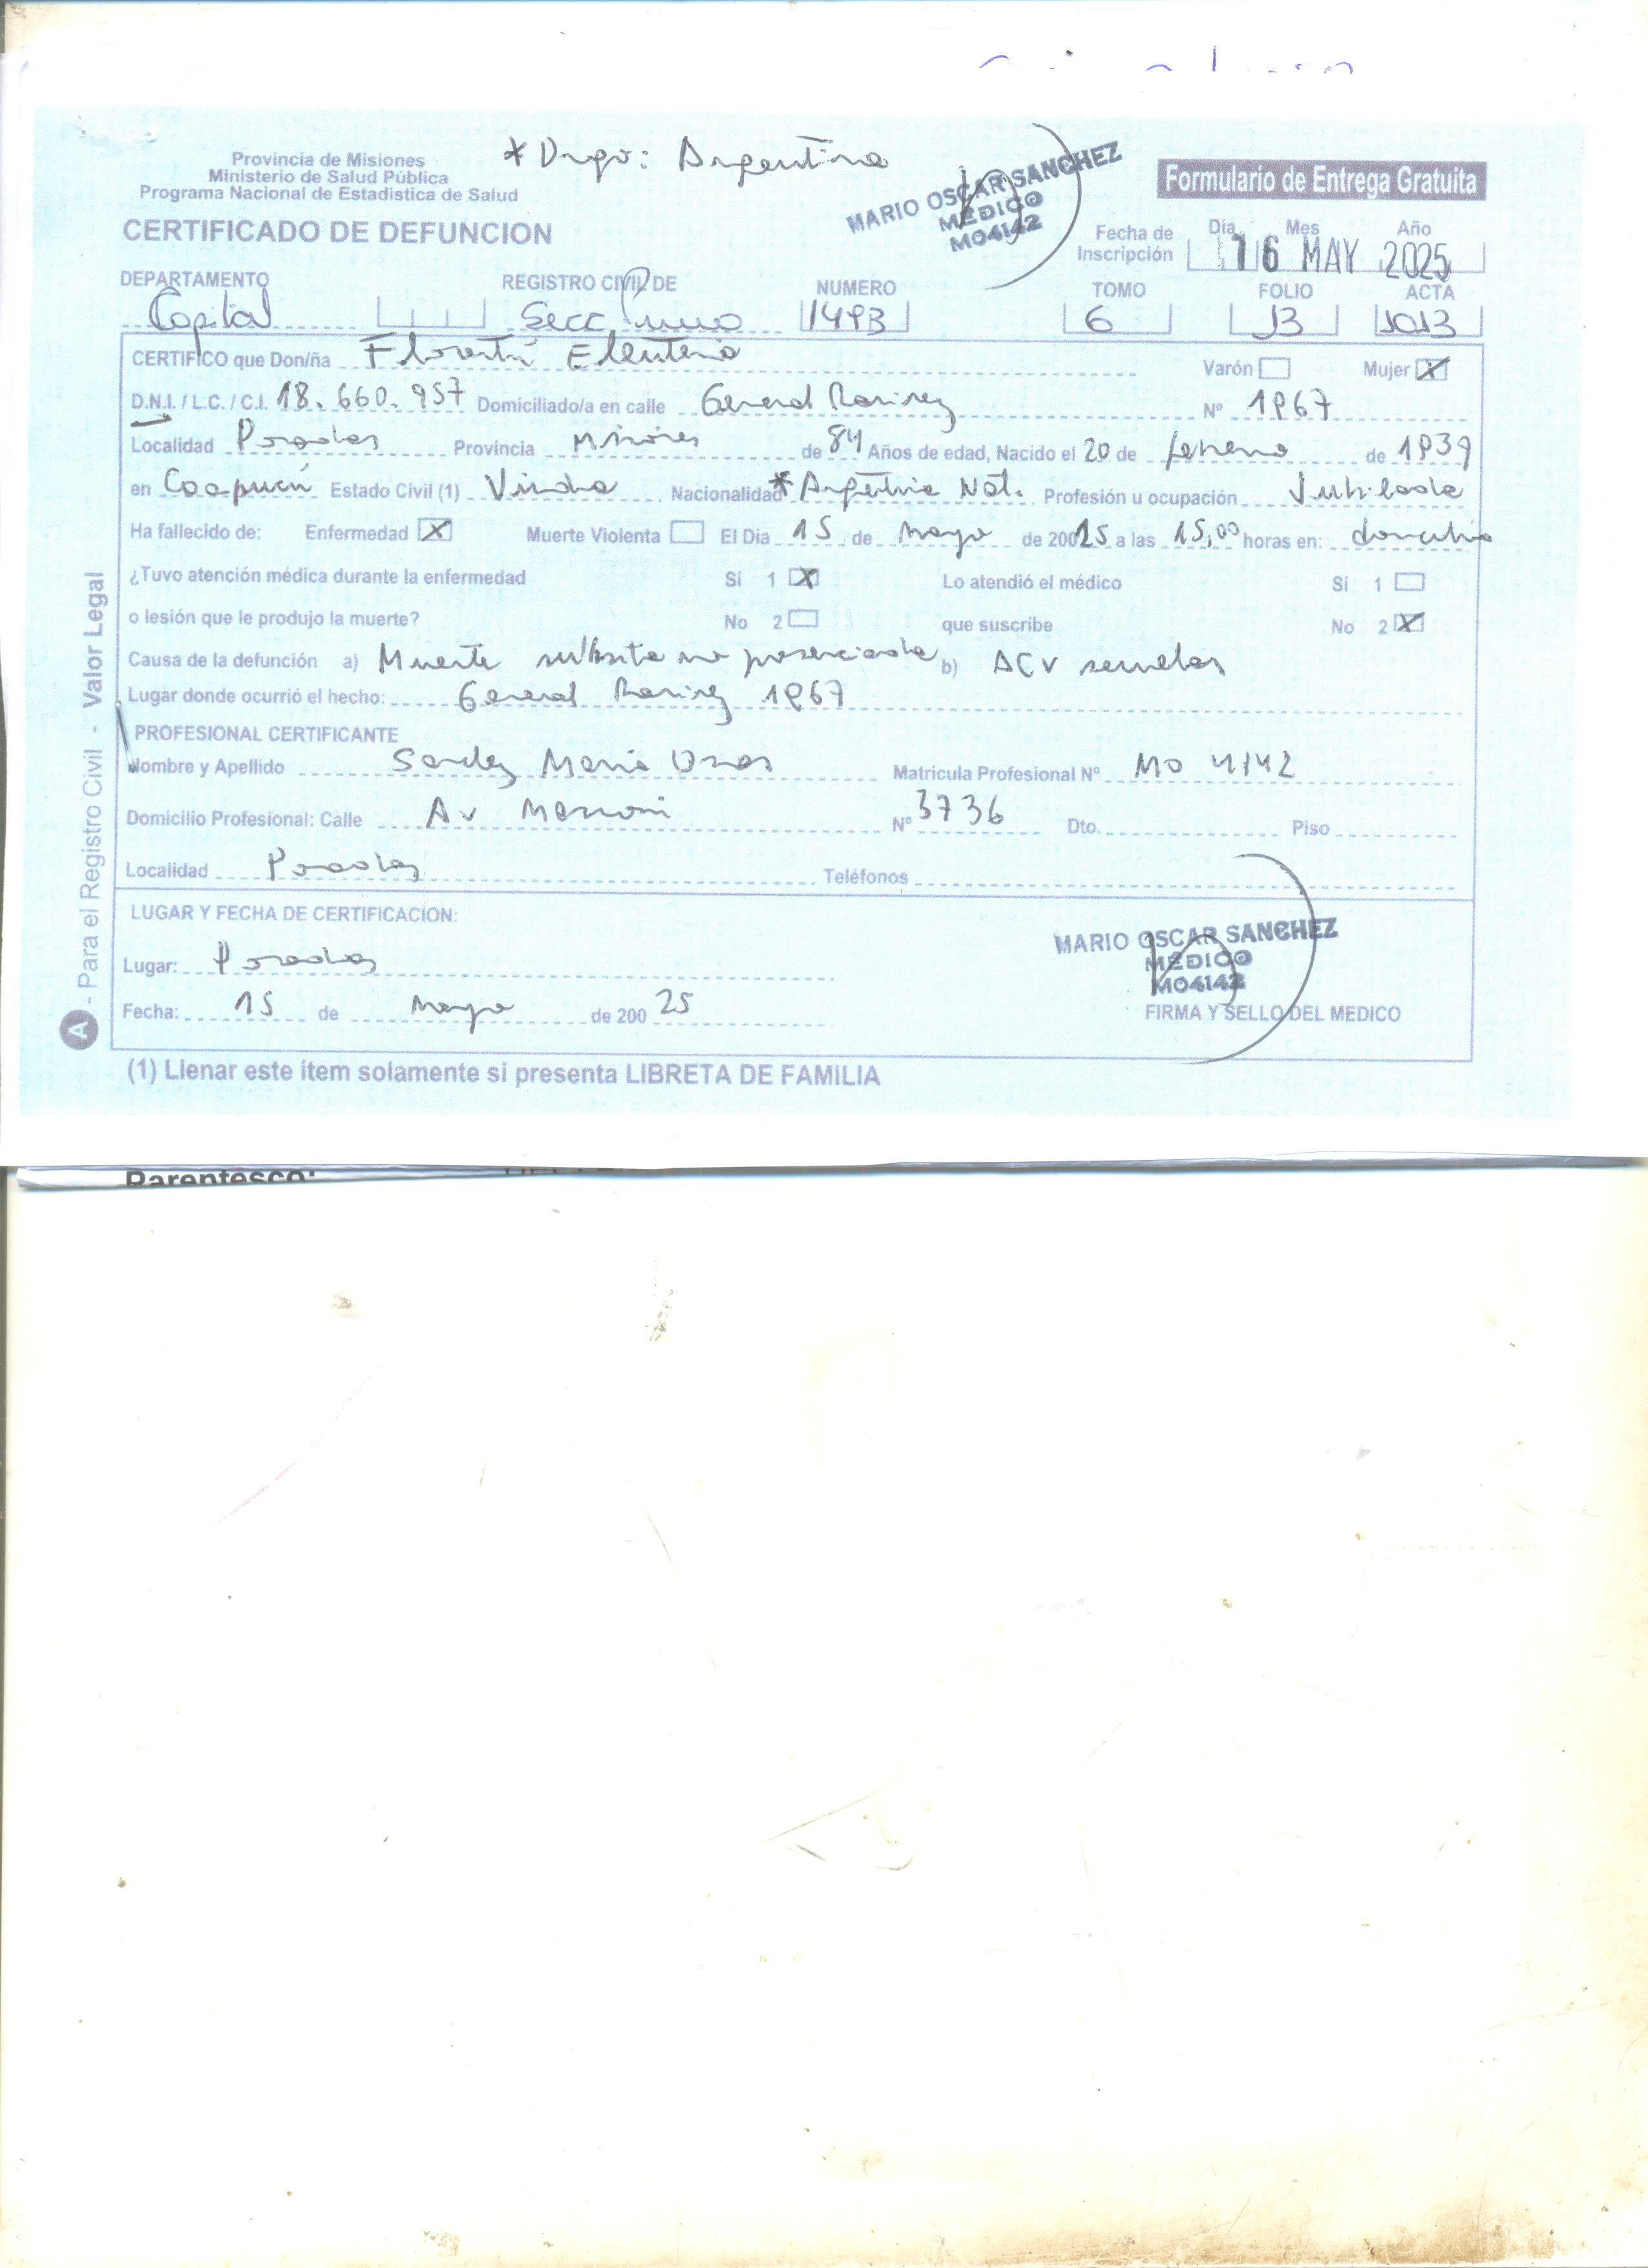 Provincia de Misiones
Ministerio de Salud Pública
Programa Nacional de Estadística de Salud
* Digo: Argentina
MARIO OSCAR SANCHEZ
MEDICO
MO4142
Formulario de Entrega Gratuita
CERTIFICADO DE DEFUNCION
Fecha de Inscripción Día Mes Año
16 MAY 2025
DEPARTAMENTO REGISTRO CIVIL DE NUMERO TOMO FOLIO ACTA
Capital Secc. uno 1493 6 13 1013
CERTIFICO que Don/ña Florentín Eleuteria Varón Mujer X
D.N.I. / L.C. / C.I. 18.660.957 Domiciliado/a en calle General Ramirez Nº 1967
Localidad Posadas Provincia Misiones de 84 Años de edad, Nacido el 20 de febrero de 1939
en Caapucú Estado Civil (1) Viuda Nacionalidad * Argentina Nat. Profesión u ocupación Jubilada
Ha fallecido de: Enfermedad X Muerte Violenta El Día 15 de Mayo de 20025 a las 15,00 horas en: domicilio
¿Tuvo atención médica durante la enfermedad Sí 1 X Lo atendió el médico Sí 1
o lesión que le produjo la muerte? No 2 que suscribe No 2 X
Causa de la defunción a) Muerte subita no presenciada b) ACV secuelas
Lugar donde ocurrió el hecho: General Ramirez 1967
PROFESIONAL CERTIFICANTE
Nombre y Apellido Sanchez Mario Oscar Matrícula Profesional Nº MO 4142
Domicilio Profesional: Calle Av Marconi Nº 3736 Dto. Piso
Localidad Posadas Teléfonos
LUGAR Y FECHA DE CERTIFICACION:
Lugar: Posadas
Fecha: 15 de Mayo de 200 25
MARIO OSCAR SANCHEZ
MEDICO
MO4142
FIRMA Y SELLO DEL MEDICO
(1) Llenar este ítem solamente si presenta LIBRETA DE FAMILIA
A - Para el Registro Civil - Valor Legal
Parentesco: